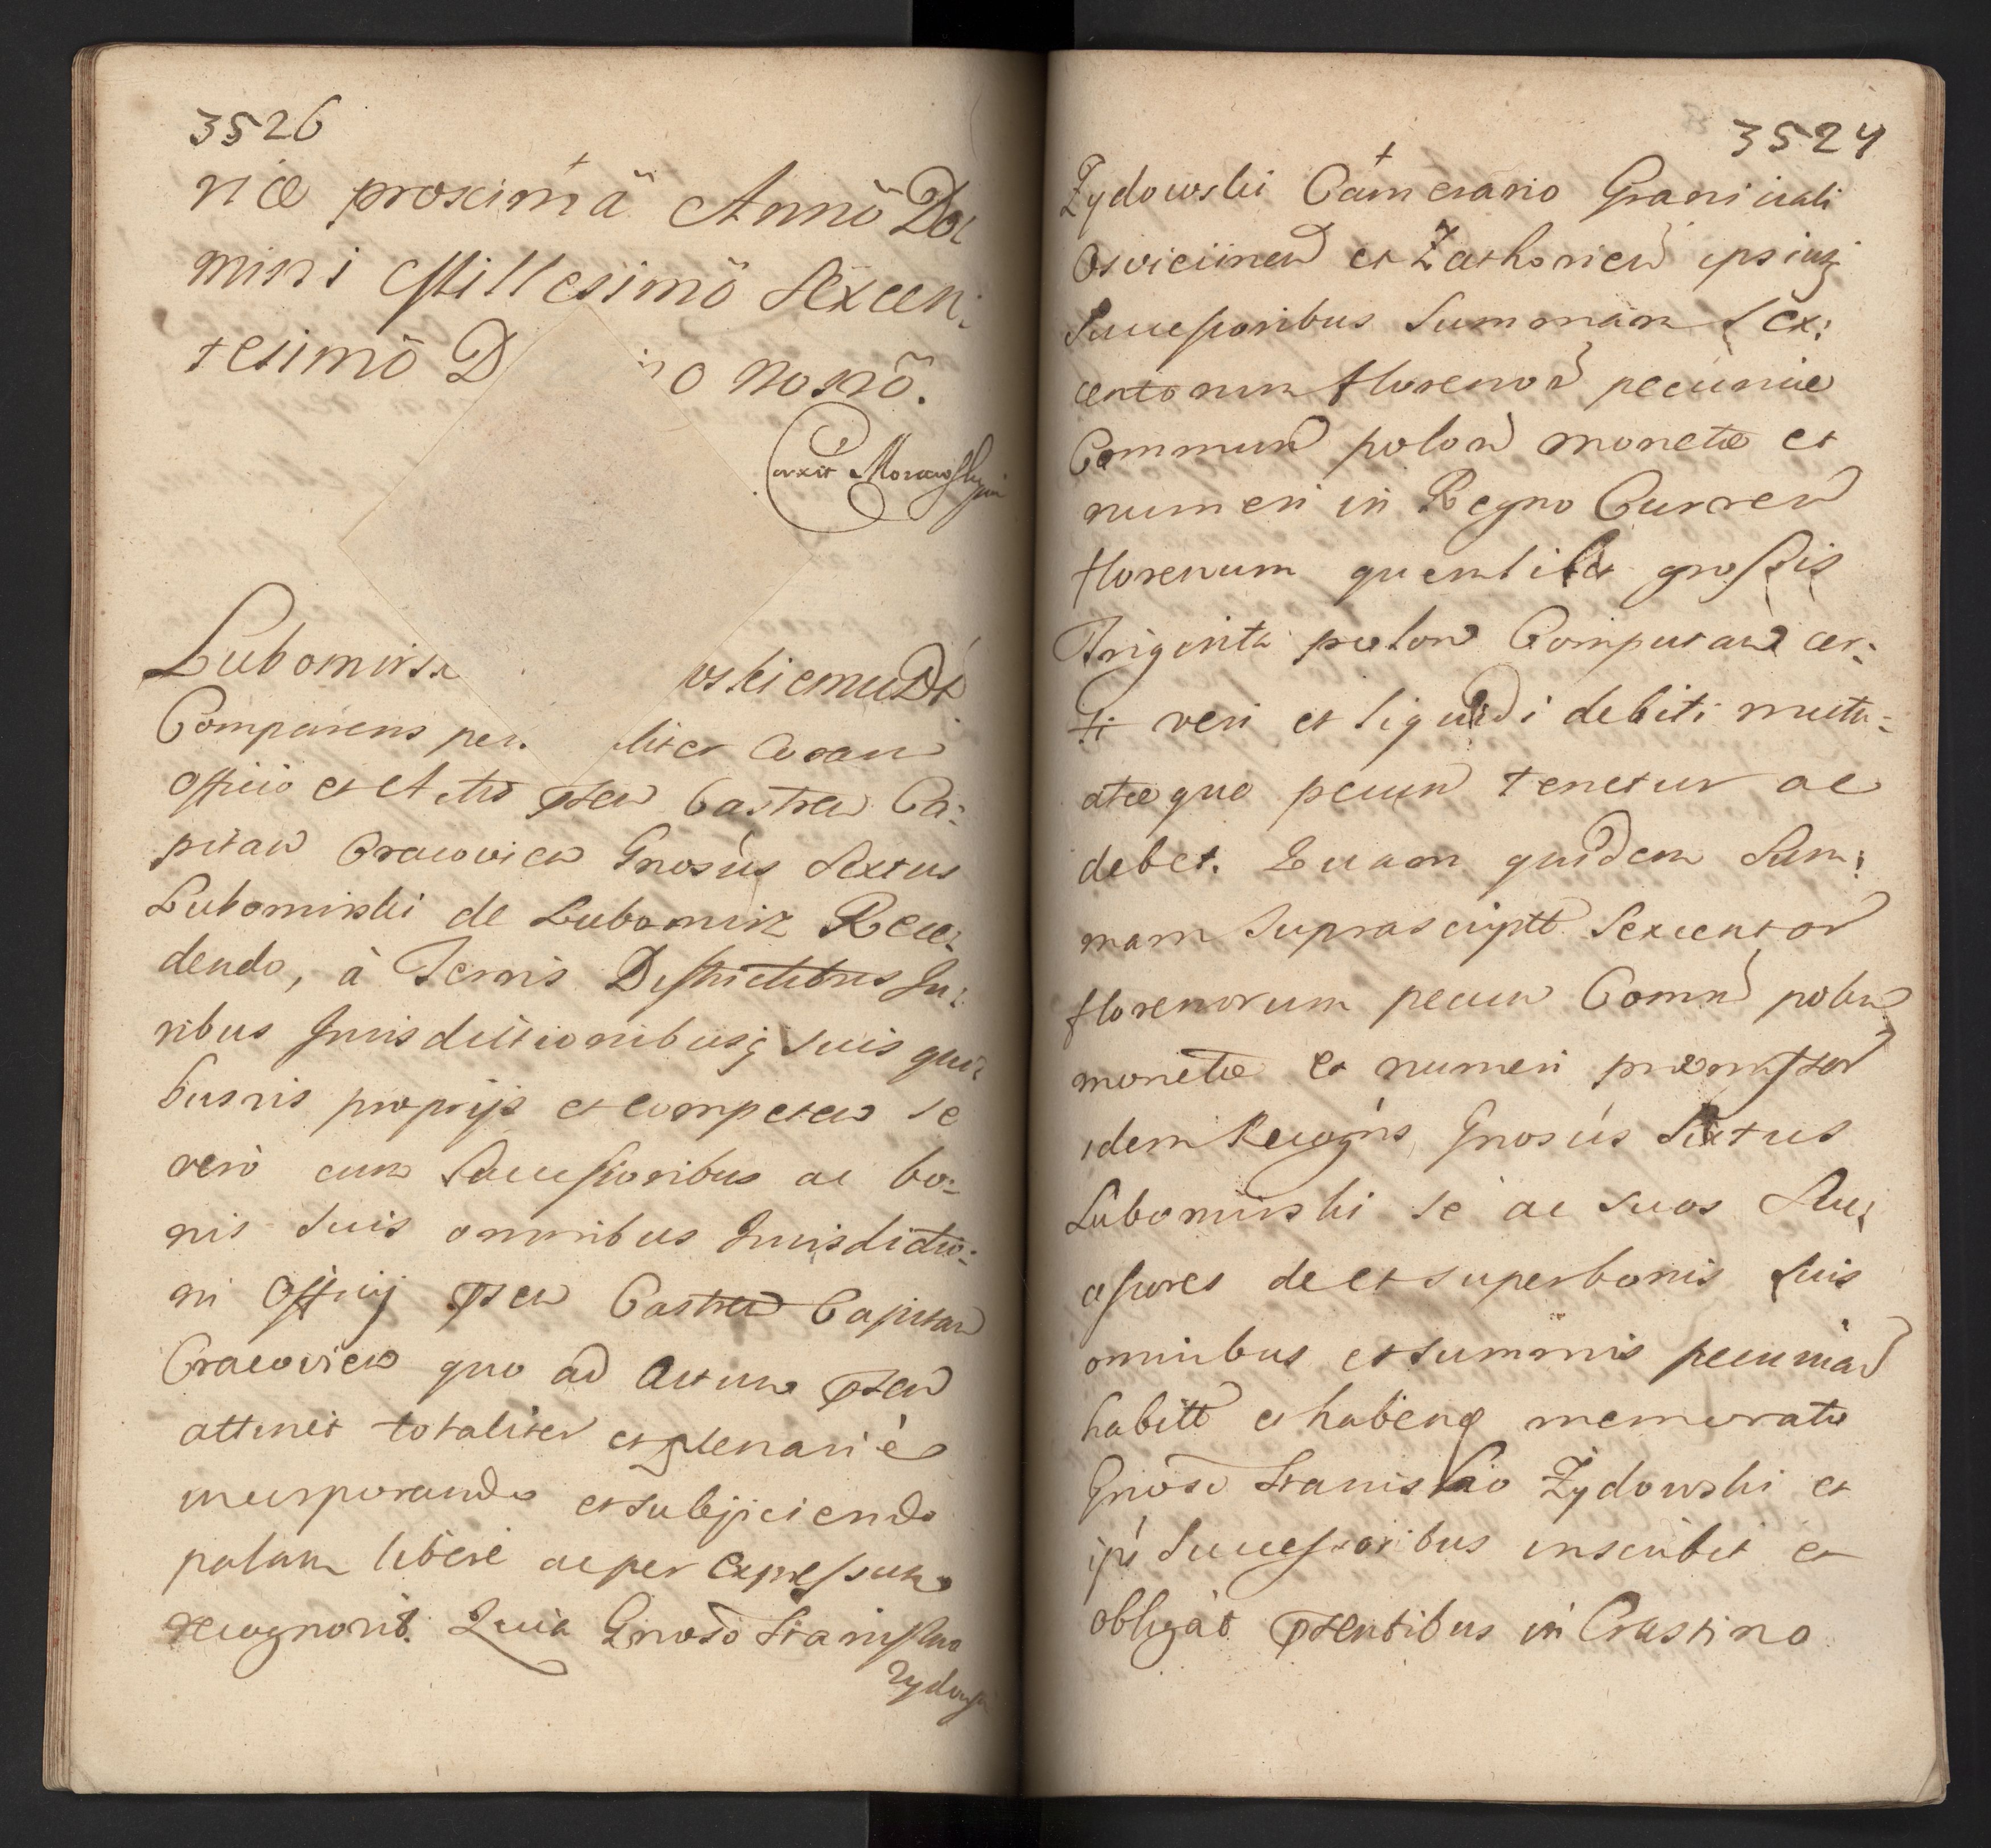 3526
niæ proximâ Annô Do
mini Millesimô Sexcen:
tesimô D no Nonô.
Corexit Morawski
Lubomirs wskiemu Dt
Comparens per liter Coram
Officio et Actis pten Castren Ca:
pitan Cracovien Gnosus Sextus
Lubomirski de Lubomirz Rece:
dendo, à Terris Districtibus Ju:
ribus Jurisdictionibusq suis qui:
busvis proprijs et competen se
verò cum Successoribus ac bo:
nis suis omnibus Jurisdictio:
ni Officij pten Castren Capitan
Cracovien quo ad Actum pten
attinet totaliter et plenariè
incorporando et subijciendo
palam liberè ac per expressum
recognovit. Quia Gnoso Stanislao
Zydowski
3527
Zydowski Camerario Granicali
Osvieciinen et Zathorien ipsiusq
Successoribus Summam Sex:
centorum florenor pecuniæ
Commun polon monetæ et
numeri in Regno Curren
florenum quemlibet grossis
Triginta polon Computan cer:
ti veri et liquidi debiti mutu:
atæque pecun tenetur ac
debet. Quam quidem Sum:
mam suprascriptt Sexcentor
florenorum pecun Comun polon
monetæ et numeri præmissor
idem Recogns Gnosus Sixtus
Lubomirski se ac suos Suc:
cessores de et super bonis suis
omnibus et summis pecuniar
habitt et habenq memorato
Gnoso Stanislao Zydowski et
ips Successoribus inscribit et
obligat ptentibus in Crastino